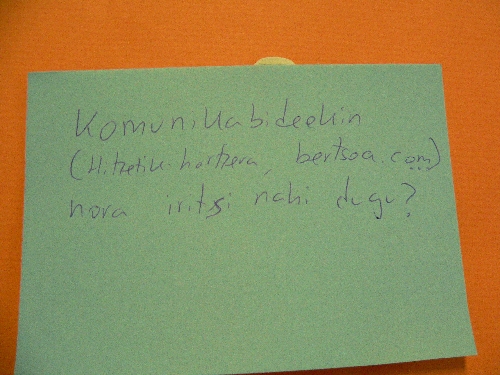 Komunikabideekin
(Hitzetik-hortzera, bertsoa.com)
nora iritsi nahi dugu?